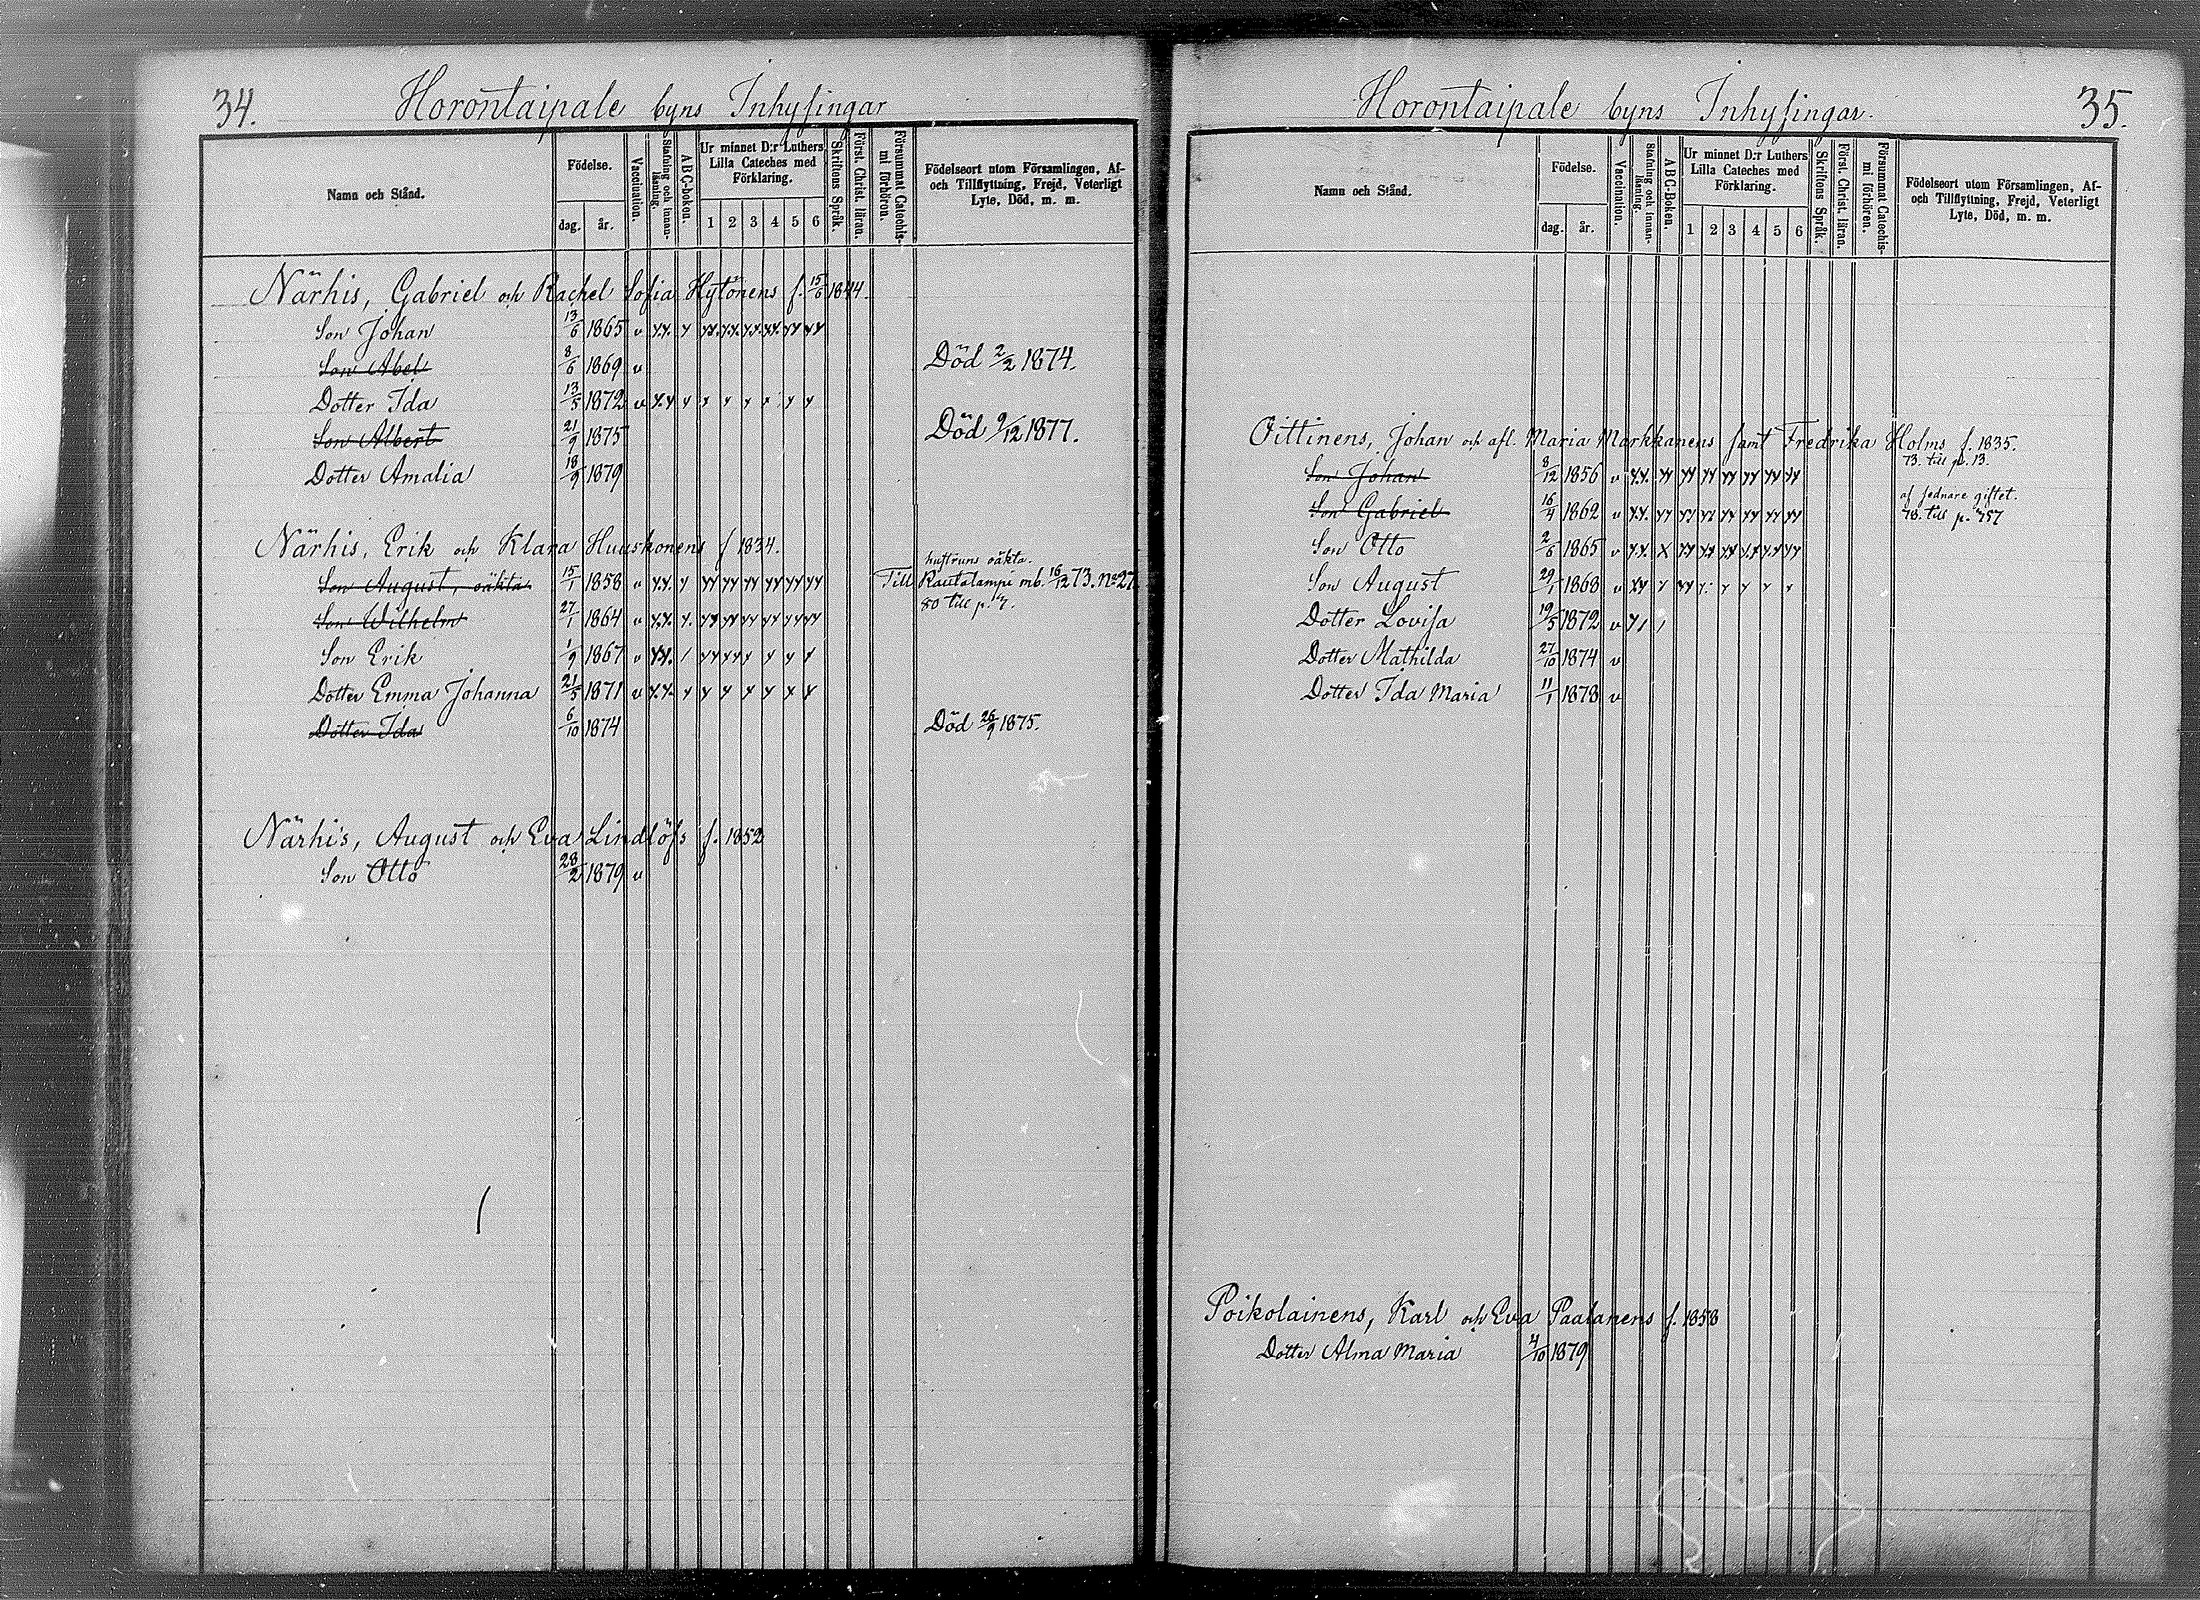 34. Horontaipale byns Inhysingar
Namn och Stånd.
Födelse.
dag. år.
Vaccination.
Stafning och innan-läsning.
ABC-boken.
Ur minnet D:r Luthers
Lilla Cateches med
Förklaring.
1 2 3 4 5 6
Skriftens Språk.
Först. Christ. läran.
Försummat Catechis-
mi förhören.
Födelseort utom Församlingen, Af-
och Tillflyttning, Frejd, Veterligt
Lyte, Död, m. m.
Närhis, Gabriel och Rachel Sofia Hytönens f. 15/6 1844.
Son Johan 13/6 1865 v
Son Abel 8/6 1869 v Död 2/2 1874.
Dotter Ida 13/5 1872 v
Son Albert 21/9 1875 Död 9/12 1877.
Dotter Amalia 18/9 1879
Närhis, Erik och Klara Huuskonens f 1834.
hustruns oäkta.
Son August, oäkta 15/1 1858 v Till Rautalampi mb. 16/12 73. No 27
Son Wilhelm 27/1 1864 v 80 till p. 7.
Son Erik 1/9 1867 v
Dotter Emma Johanna 21/5 1871 v
Dotter Ida 6/10 1874 Död 26/9 1875.
Närhis, August och Eva Lindlöfs f. 1852
Son Otto 28/2 1879 v
Horontaipale byns Inhysingar. 35.
Namn och Stånd.
Födelse.
dag. år.
Vaccination.
Stafning och innan-läsning.
ABC-Boken.
Ur minnet D:r Luthers
Lilla Cateches med
Förklaring.
1 2 3 4 5 6
Skriftens Språk.
Först. Christ. läran.
Försummat Catechis-
mi förhören.
Födelseort utom Församlingen, Af-
och Tillflyttning, Frejd, Veterligt
Lyte, Död, m. m.
Oittinens, Johan och afl. Maria Markkanens samt Fredrika Holms f. 1835.
Son Johan 8/12 1856 v 73. till p. 13.
af sednare giftet.
Son Gabriel 16/4 1862 v 78. till p. 757
Son Otto 2/6 1865 v
Son August 29/1 1868 v
Dotter Lovisa 19/5 1872 v
Dotter Mathilda 27/10 1874 v
Dotter Ida Maria 11/1 1878 v
Poikolainens, Karl och Eva Paalanens f. 1858
Dotter Alma Maria 4/10 1879